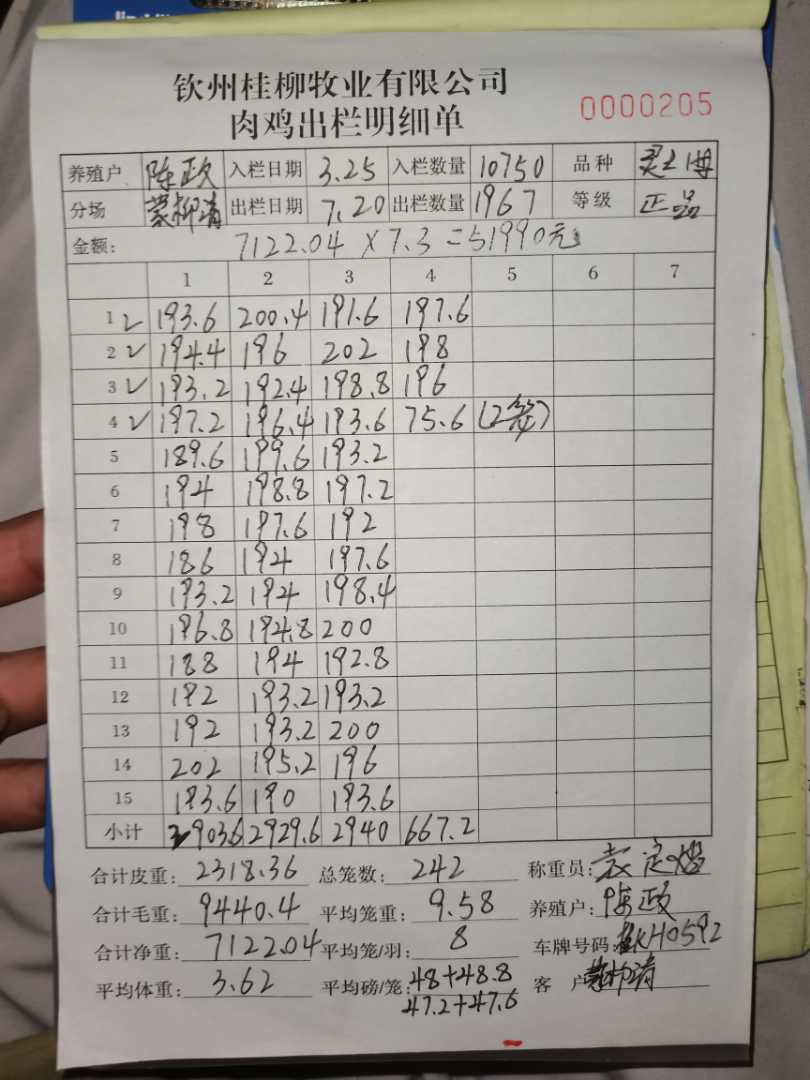 钦州桂柳牧业有限公司
肉鸡出栏明细单 0000205
养殖户 陈政 入栏日期 3.25 入栏数量 10750 品种
分场 蒙柳清 出栏日期 7.20 出栏数量 1967 等级 正品
金额: 7122.04 X 7.3 = 51990元
1 2 3 4 5 6 7
1 ✓ 193.6 200.4 191.6 197.6
2 ✓ 194.4 196 202 198
3 ✓ 193.2 192.4 198.8 196
4 ✓ 197.2 196.4 193.6 75.6 (2笼)
5 189.6 199.6 193.2
6 194 198.8 197.2
7 198 197.6 192
8 186 194 197.6
9 193.2 194 198.4
10 196.8 194.8 200
11 188 194 192.8
12 192 193.2 193.2
13 192 193.2 200
14 202 195.2 196
15 193.6 190 193.6
小计 2903.6 2929.6 2940 667.2
合计皮重: 2318.36 总笼数: 242 称重员:
合计毛重: 9440.4 平均笼重: 9.58 养殖户: 陈政
合计净重: 7122.04 平均笼/羽: 8 车牌号码: KH0592
平均体重: 3.62 平均磅/笼: 48+48.8 客户 蒙柳清
47.2+47.6